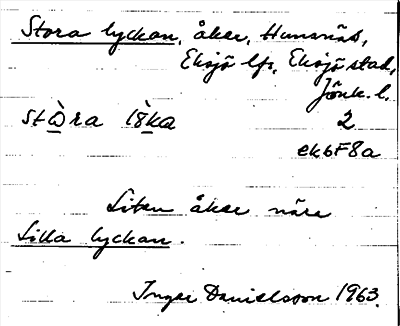 Stora lyckan, åker, Hunsnäs,
Eksjö lfs, Eksjö stad,
Jönk. l.
stò̲ra lỳ8̲ka 2
ek6F8a
Liten åker nära
Lilla lyckan.
Inger Danielsson 1963.